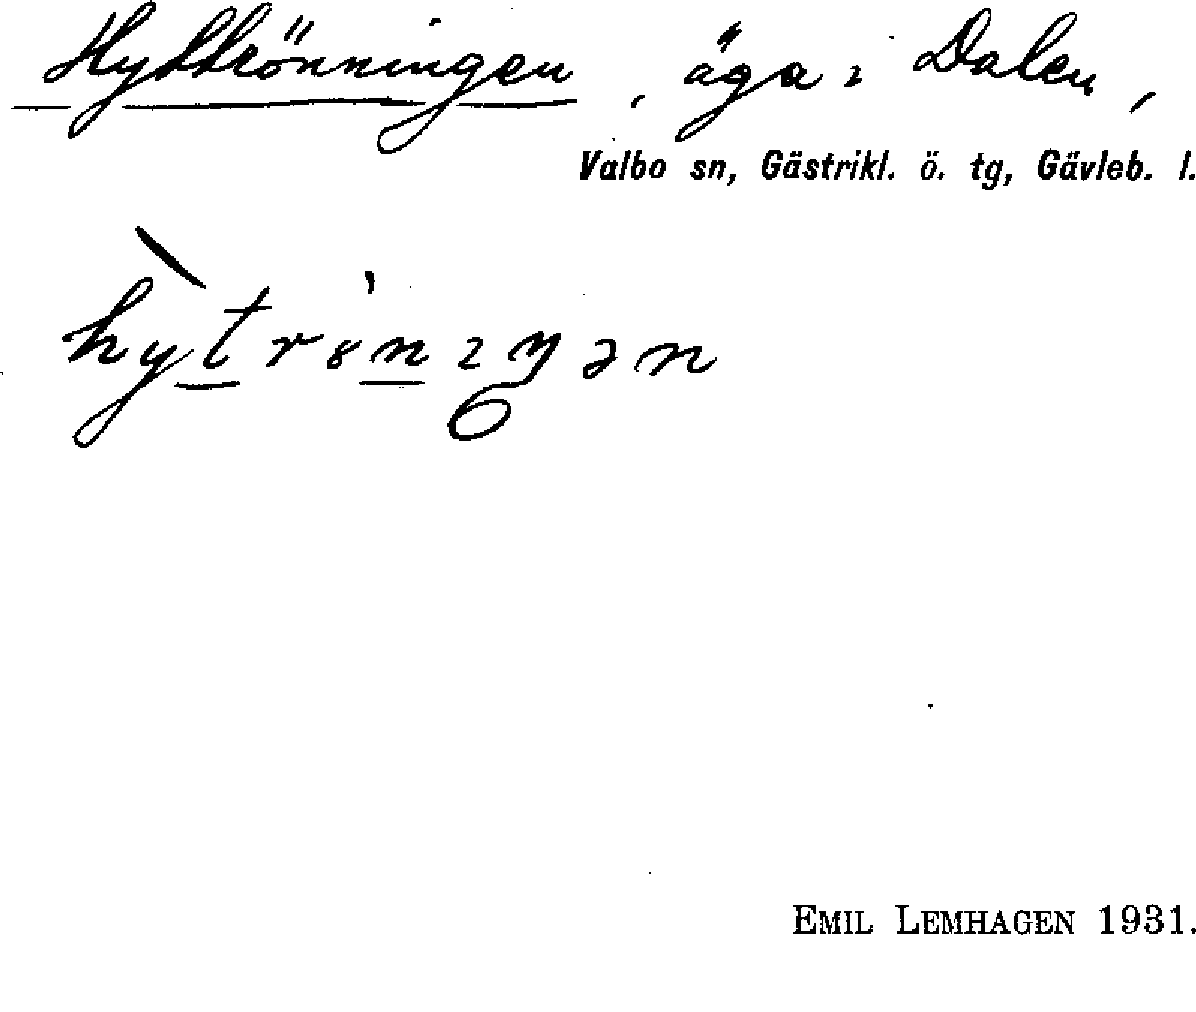 Hyttrönningen, äga i Dalen,
Valbo sn, Gästrikl. ö. tg, Gävleb. l.
hỳ̠t̠rön̠ıŋən
EMIL LEMHAGEN 1931.